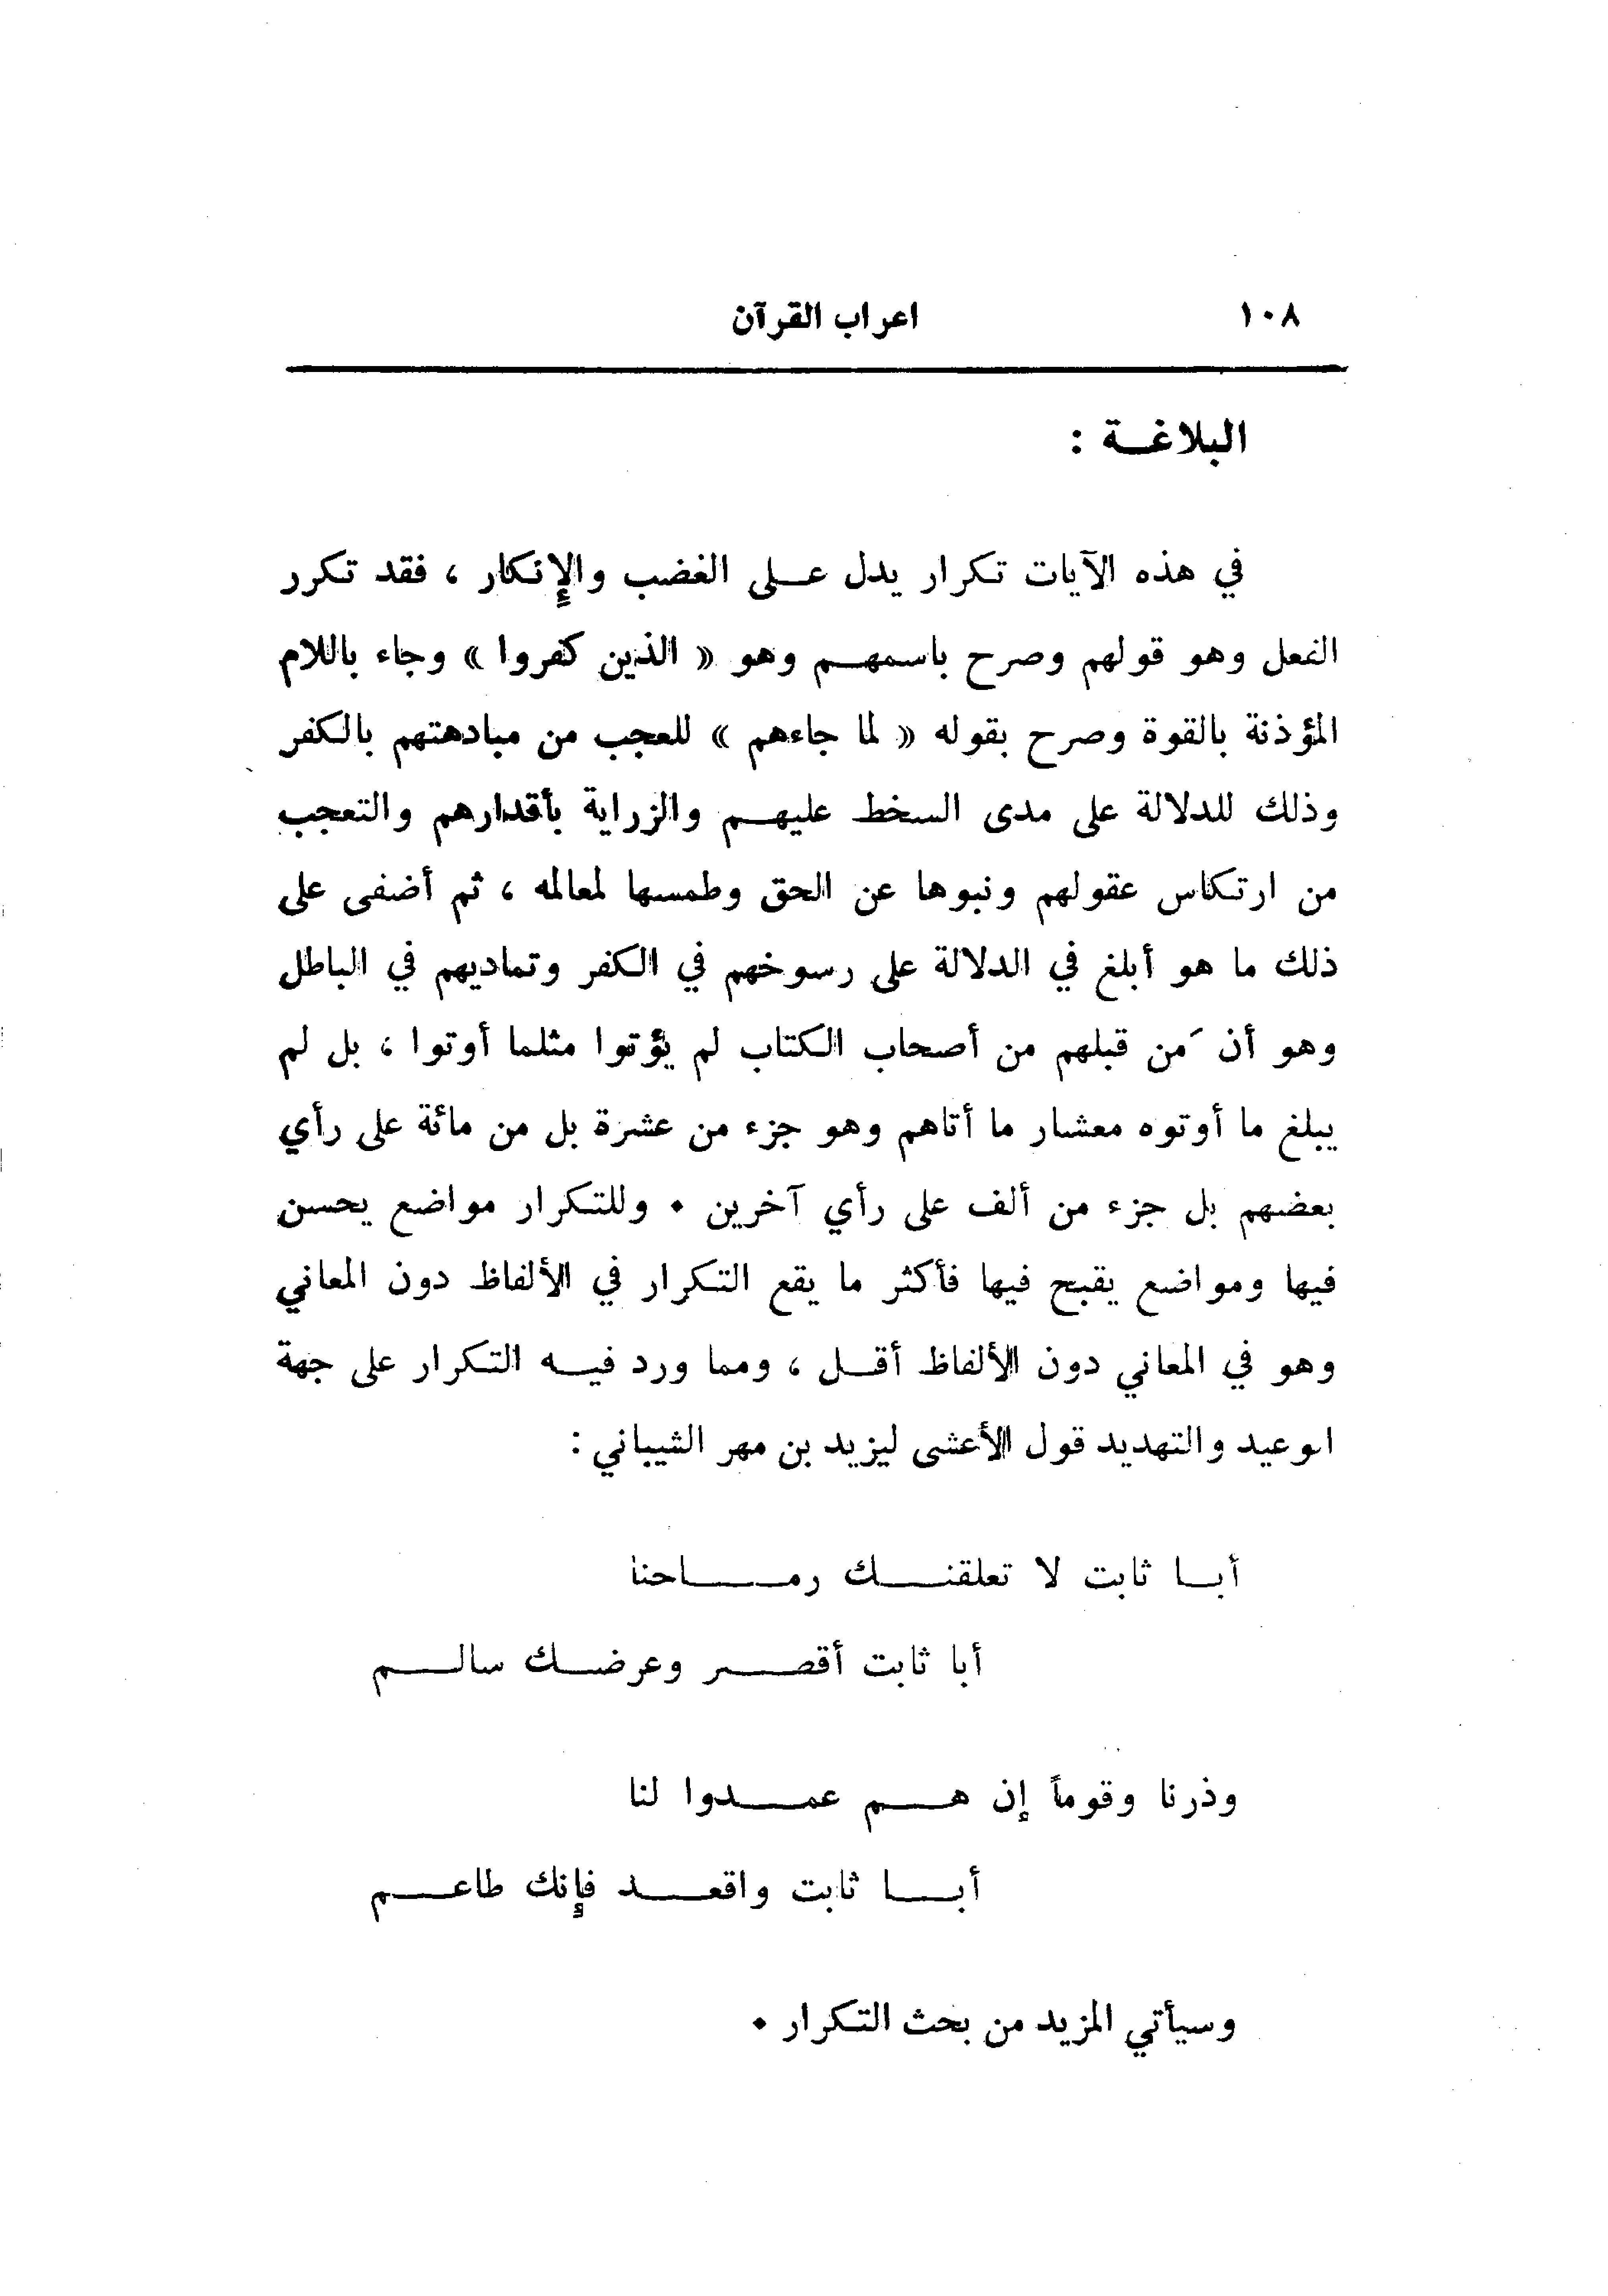 ١٠٨ اعراب القرآن
البلاغـة :
في هذه الآيات تكرار يدل عـلى الغضب والإنكار ، فقد تكرر
الفعل وهو قولهم وصرح باسمهـم وهو « الذين كفروا » وجاء باللام
المؤذنة بالقوة وصرح بقوله « لما جاءهم » للعجب من مبادهتهم بالكفر
وذلك للدلالة على مدى السخط عليهـم والزراية بأقدارهم والتعجب
من ارتكاس عقولهم ونبوها عن الحق وطمسها لمعالمه ، ثم أضفى على
ذلك ما هو أبلغ في الدلالة على رسوخهم في الكفر وتماديهم في الباطل
وهو أن مَن قبلهم من أصحاب الكتاب لم يؤتوا مثلما أوتوا ، بل لم
يبلغ ما أوتوه معشار ما أتاهم وهو جزء من عشرة بل من مائة على رأي
بعضهم بل جزء من ألف على رأي آخرين . وللتكرار مواضع يحسن
فيها ومواضع يقبح فيها فأكثر ما يقع التكرار في الألفاظ دون المعاني
وهو في المعاني دون الألفاظ أقـل ، ومما ورد فيـه التكرار على جهة
الوعيد والتهديد قول الأعشى ليزيد بن مهر الشيباني :
أبـا ثابت لا تعلقنـك رمـاحنا
أبا ثابت أقصـر وعرضـك سالـم
وذرنا وقوماً إن هـم عمـدوا لنا
أبـا ثابت واقعـد فإنك طاعـم
وسيأتي المزيد من بحث التكرار .